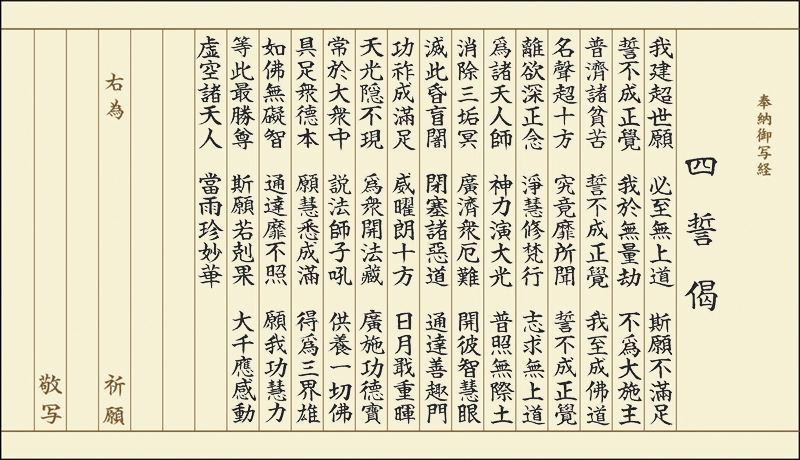 奉納御写経
四誓偈
我建超世願 必至無上道 斯願不滿足
誓不成正覺 我於無量劫 不爲大施主
普濟諸貧苦 誓不成正覺 我至成佛道
名聲超十方 究竟靡所聞 誓不成正覺
離欲深正念 淨慧修梵行 志求無上道
爲諸天人師 神力演大光 普照無際土
消除三垢冥 廣濟衆厄難 開彼智慧眼
滅此昏盲闇 閉塞諸惡道 通達善趣門
功祚成滿足 威曜朗十方 日月戢重暉
天光隐不現 爲衆開法藏 廣施功德寶
常於大衆中 説法師子吼 供養一切佛
具足衆德本 願慧悉成滿 得爲三界雄
如佛無礙智 通達靡不照 願我功慧力
等此最勝尊 斯願若剋果 大千應感動
虛空諸天人 當雨珍妙華
右為 祈願
敬写